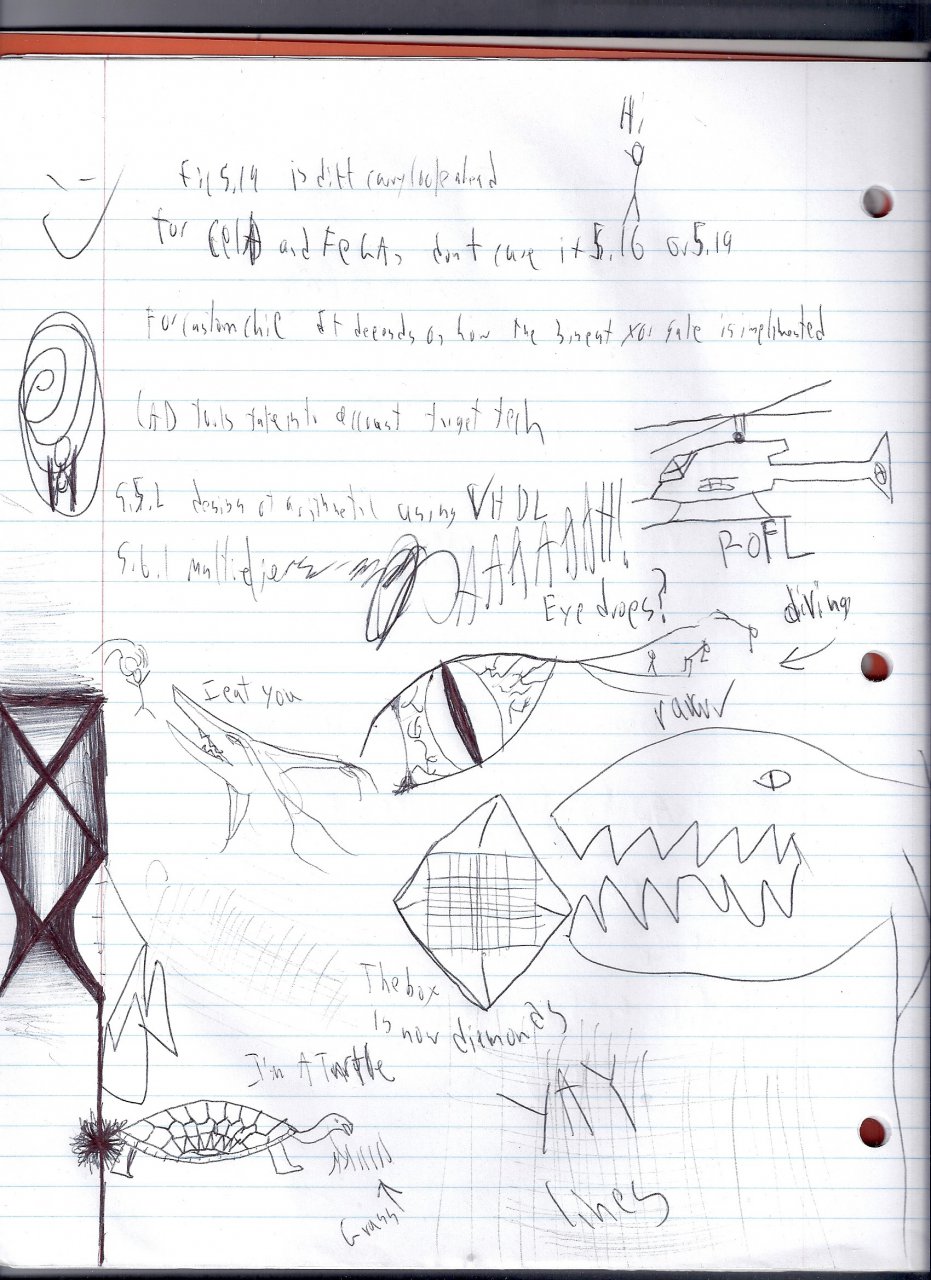 Hi
Fig 5.19 is diff carry lookahead
for and don't care if 5.16 or 5.19
For custom it depends on how the 3 input xor gate is implimented
CAD tools take into account target tech
5.5.2 design of arithmetic using VHDL
5.6.1
AAAAAAH!!
ROFL
Eye drops?
diving
I eat you
rawr
The box
is now diemonds
I'm A Turtle
YAY
lines
Grass